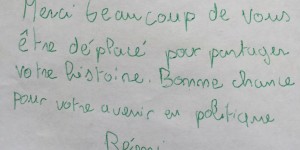 Merci beaucoup de vous
être déplacé pour partager
votre histoire. Bonne chance
pour votre avenir en politique
Rémi